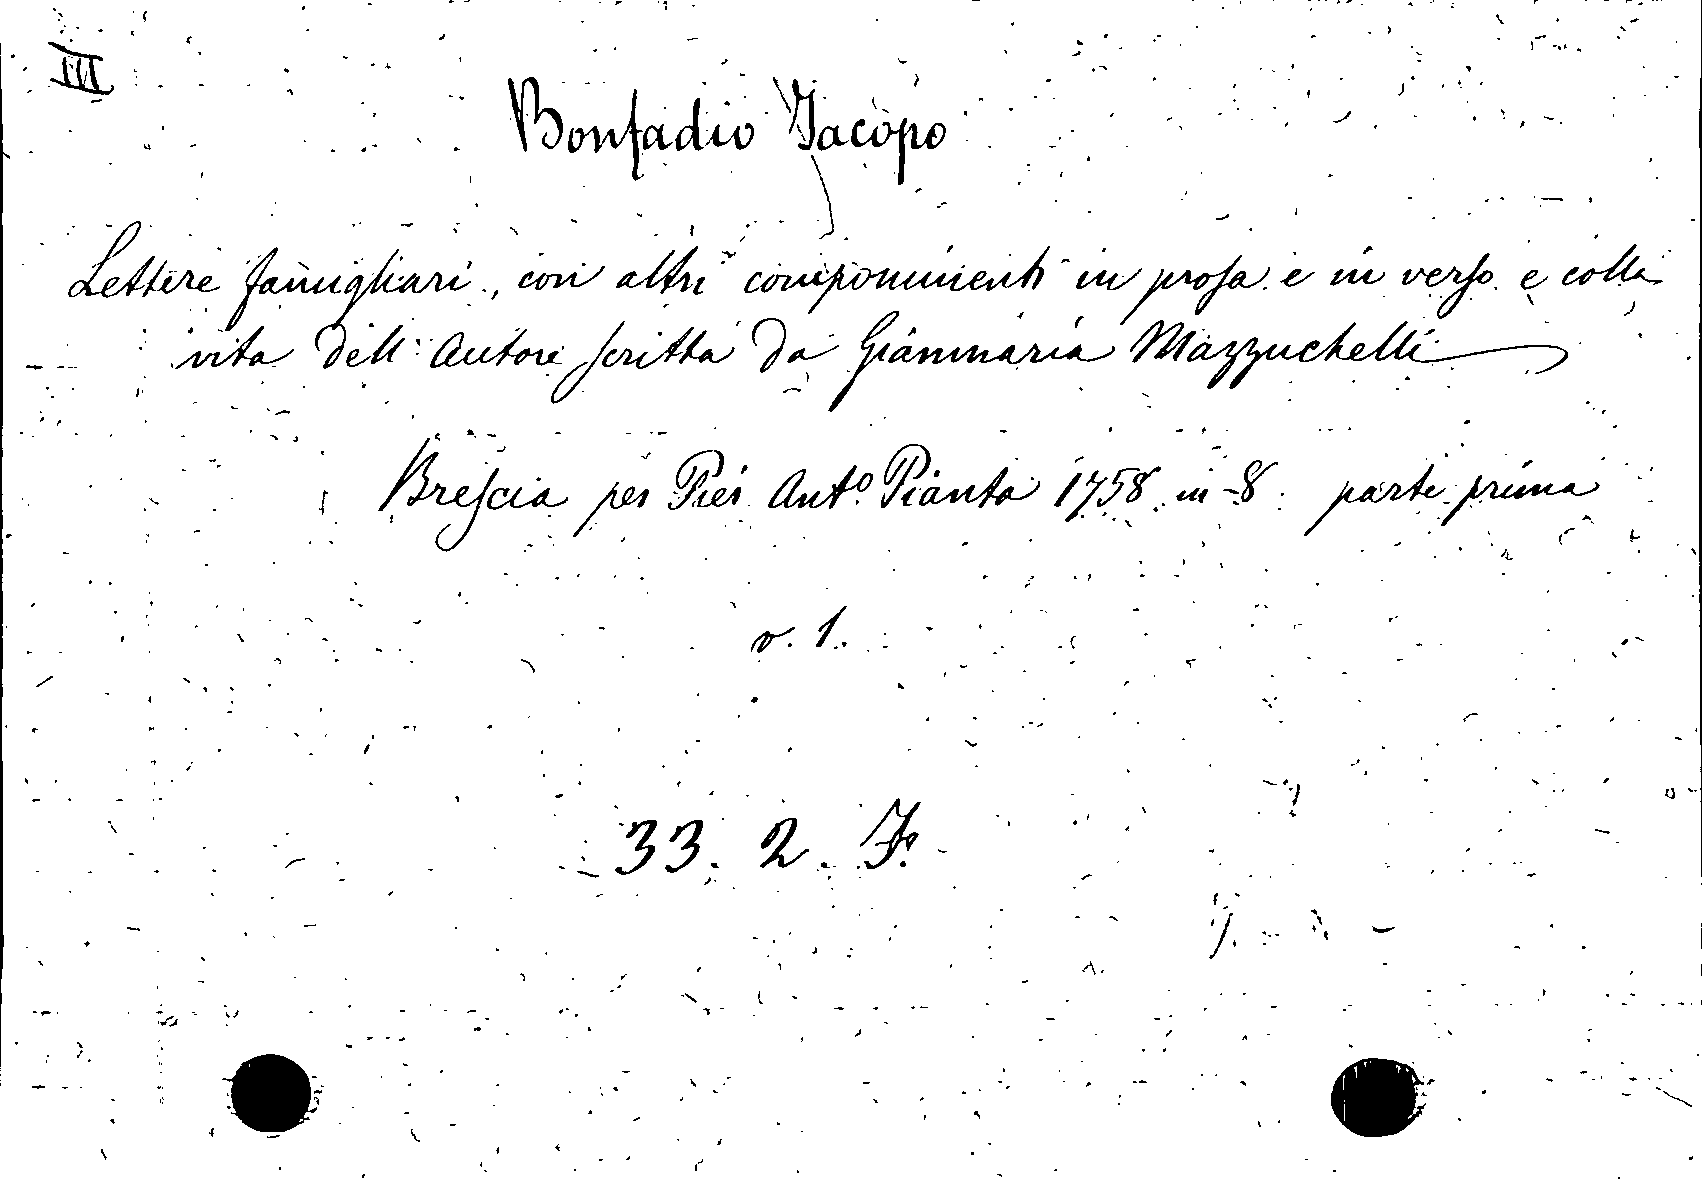 III
Bonfadio Jacopo
Lettere famigliari, con altri componimenti in prosa e in verso e colla
vita dell'Autore scritta da Giammaria Mazzuchelli
Brescia per Pier Antº Pianta 1758 in-8. parte prima
v. 1.
33. 2. J.